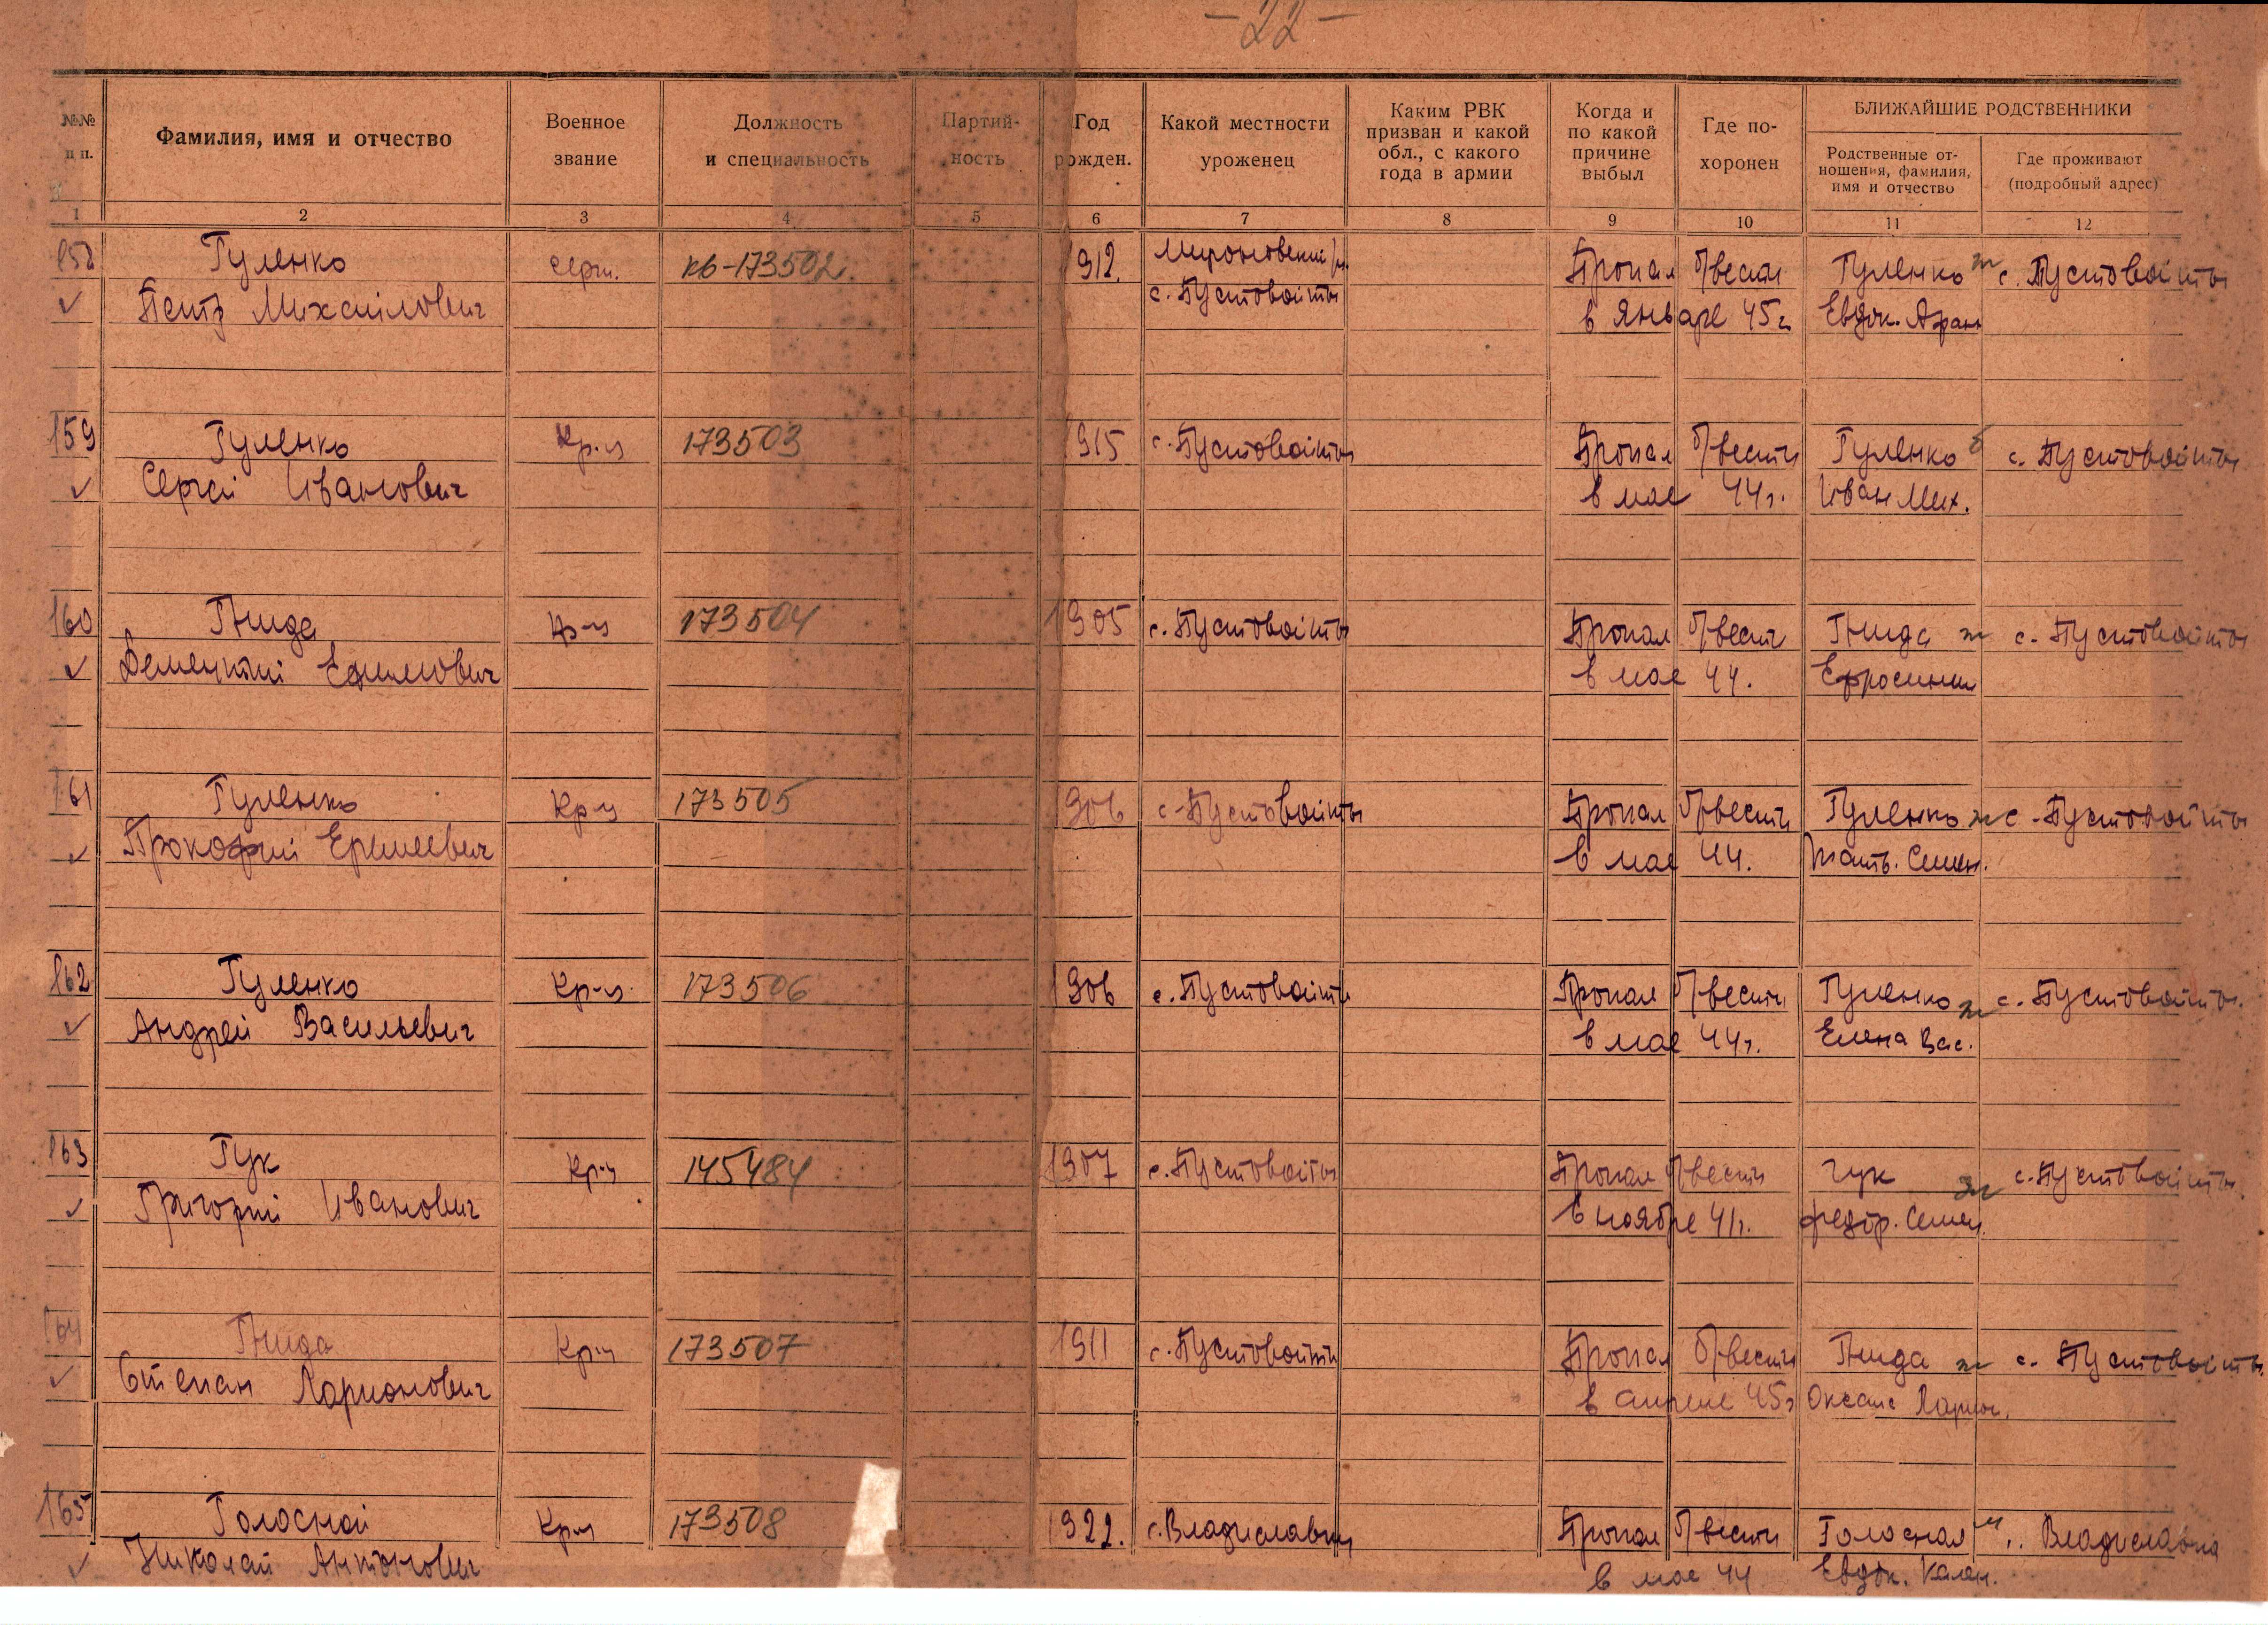 -22-
№№ п п.
Фамилия, имя и отчество
Военное звание
Должность и специальность
Партийность
Год рожден.
Какой местности уроженец
Каким РВК призван и какой обл., с какого года в армии
Когда и по какой причине выбыл
Где похоронен
БЛИЖАЙШИЕ РОДСТВЕННИКИ
Родственные отношения, фамилия, имя и отчество
Где проживают (подробный адрес)
1 2 3 4 5 6 7 8 9 10 11 12
158 Гуленко серж. кв-173502 1912. Мироновский р-н. Пропал б/вести Гуленко ж с. Пустовойты
Петр Михайлович с. Пустовойты в январе 45 г. Евдок. Афан
159 Гуленко Кр-ц 173503 1915 с. Пустовойты Пропал б/вести Гуленко с. Пустовойты
Сергей Иванович в мае 44 г. Иван Мих.
160 Гнида Кр-ц 173504 1905 с. Пустовойты Пропал б/вести Гнида ж с. Пустовойты
Дементий Ефимович в мае 44. Ефросиния
161 Гуленко Кр-ц 173505 1906 с. Пустовойты Пропал б/вести Гуленко ж с. Пустовойты
Прокофий Еремеевич в мае 44. Семен.
162 Гуленко Кр-ц 173506 1906 с. Пустовойты Пропал б/вести Гуленко ж с. Пустовойты.
Андрей Васильевич в мае 44 г. Елена Вас.
163 Гук Кр-ц 145484 1907 с. Пустовойты Пропал б/вести Гук ж с. Пустовойты
Григорий Иванович в ноябре 41 г. Федор. Семен.
164 Гнида Кр-ц 173507 1911 с. Пустовойты Пропал б/вести Гнида ж с. Пустовойты.
Степан Ларионович в апреле 45 г Оксана Ларион.
165 Голосной Кр-ц 173508 1922. с. Владиславка Пропал б/вести Голосная м с. Владиславка
Николай Антонович в мае 44 Евдок.